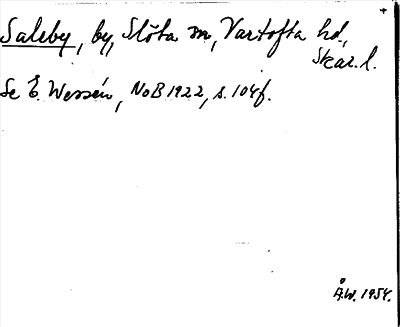 Saleby, by, Slöta sn, Vartofta hd.,
Skar. l.
Se E. Wessén, NoB 1922, s. 104f.
Å.W. 1954.